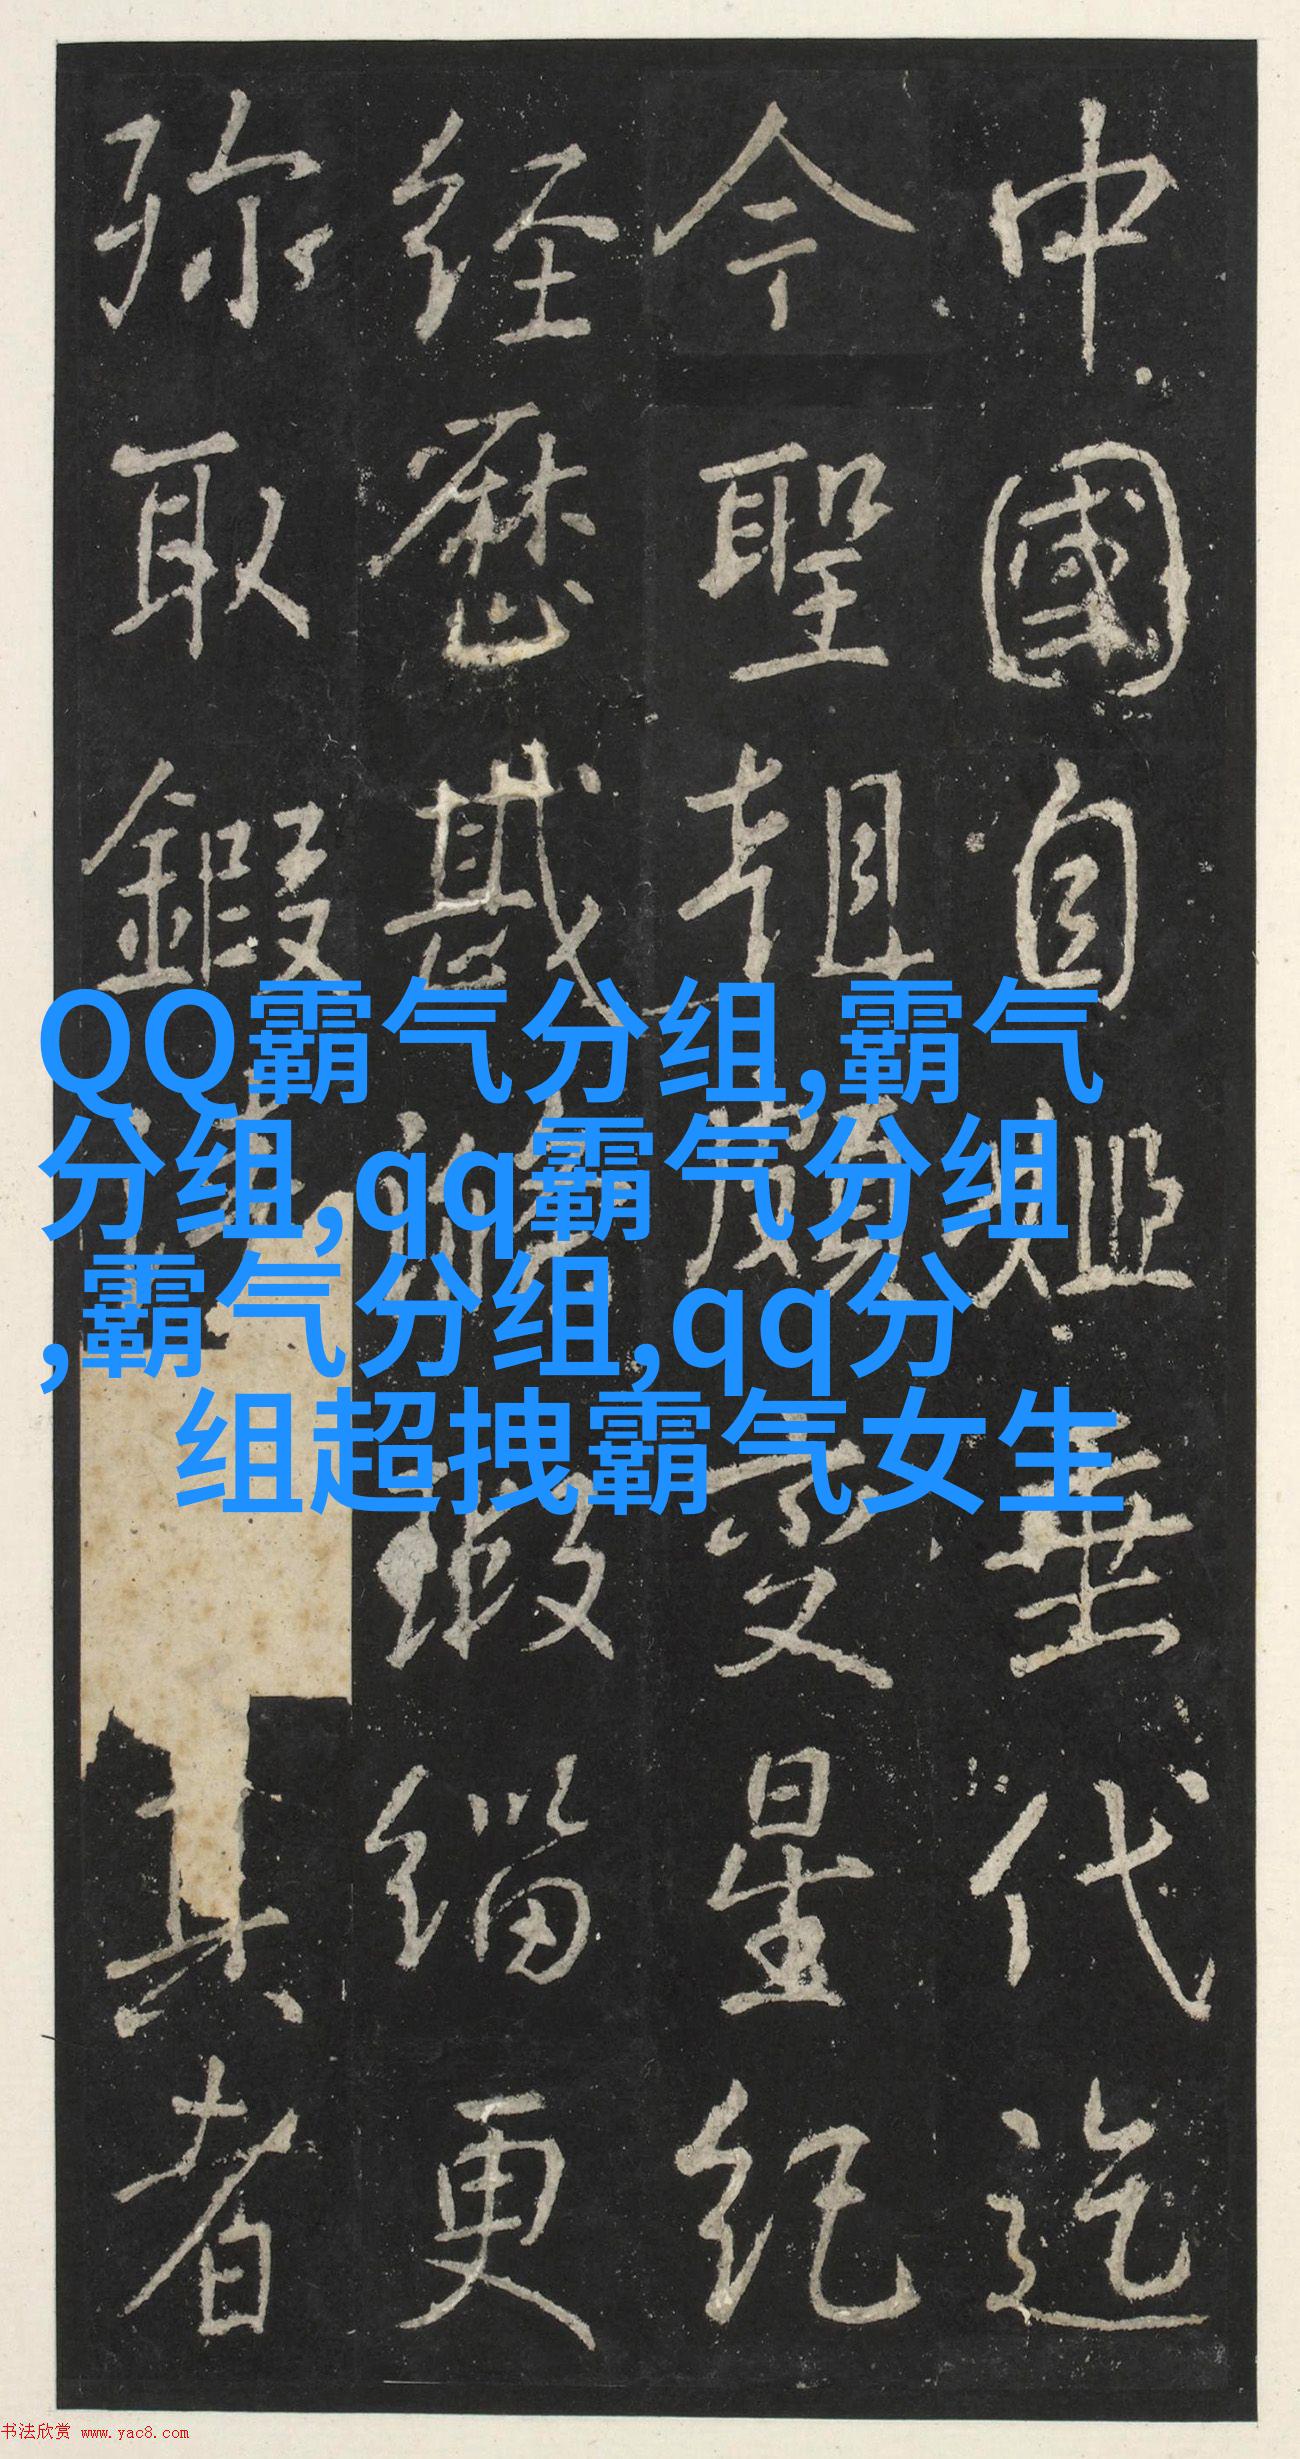 中國自垂代迄
今聖朝星紀
经歷更
弥取真者
QQ霸气分组,霸气
分组,qq霸气分组
,霸气分组,qq分
组超拽霸气女生
书法欣赏 www.yac8.com